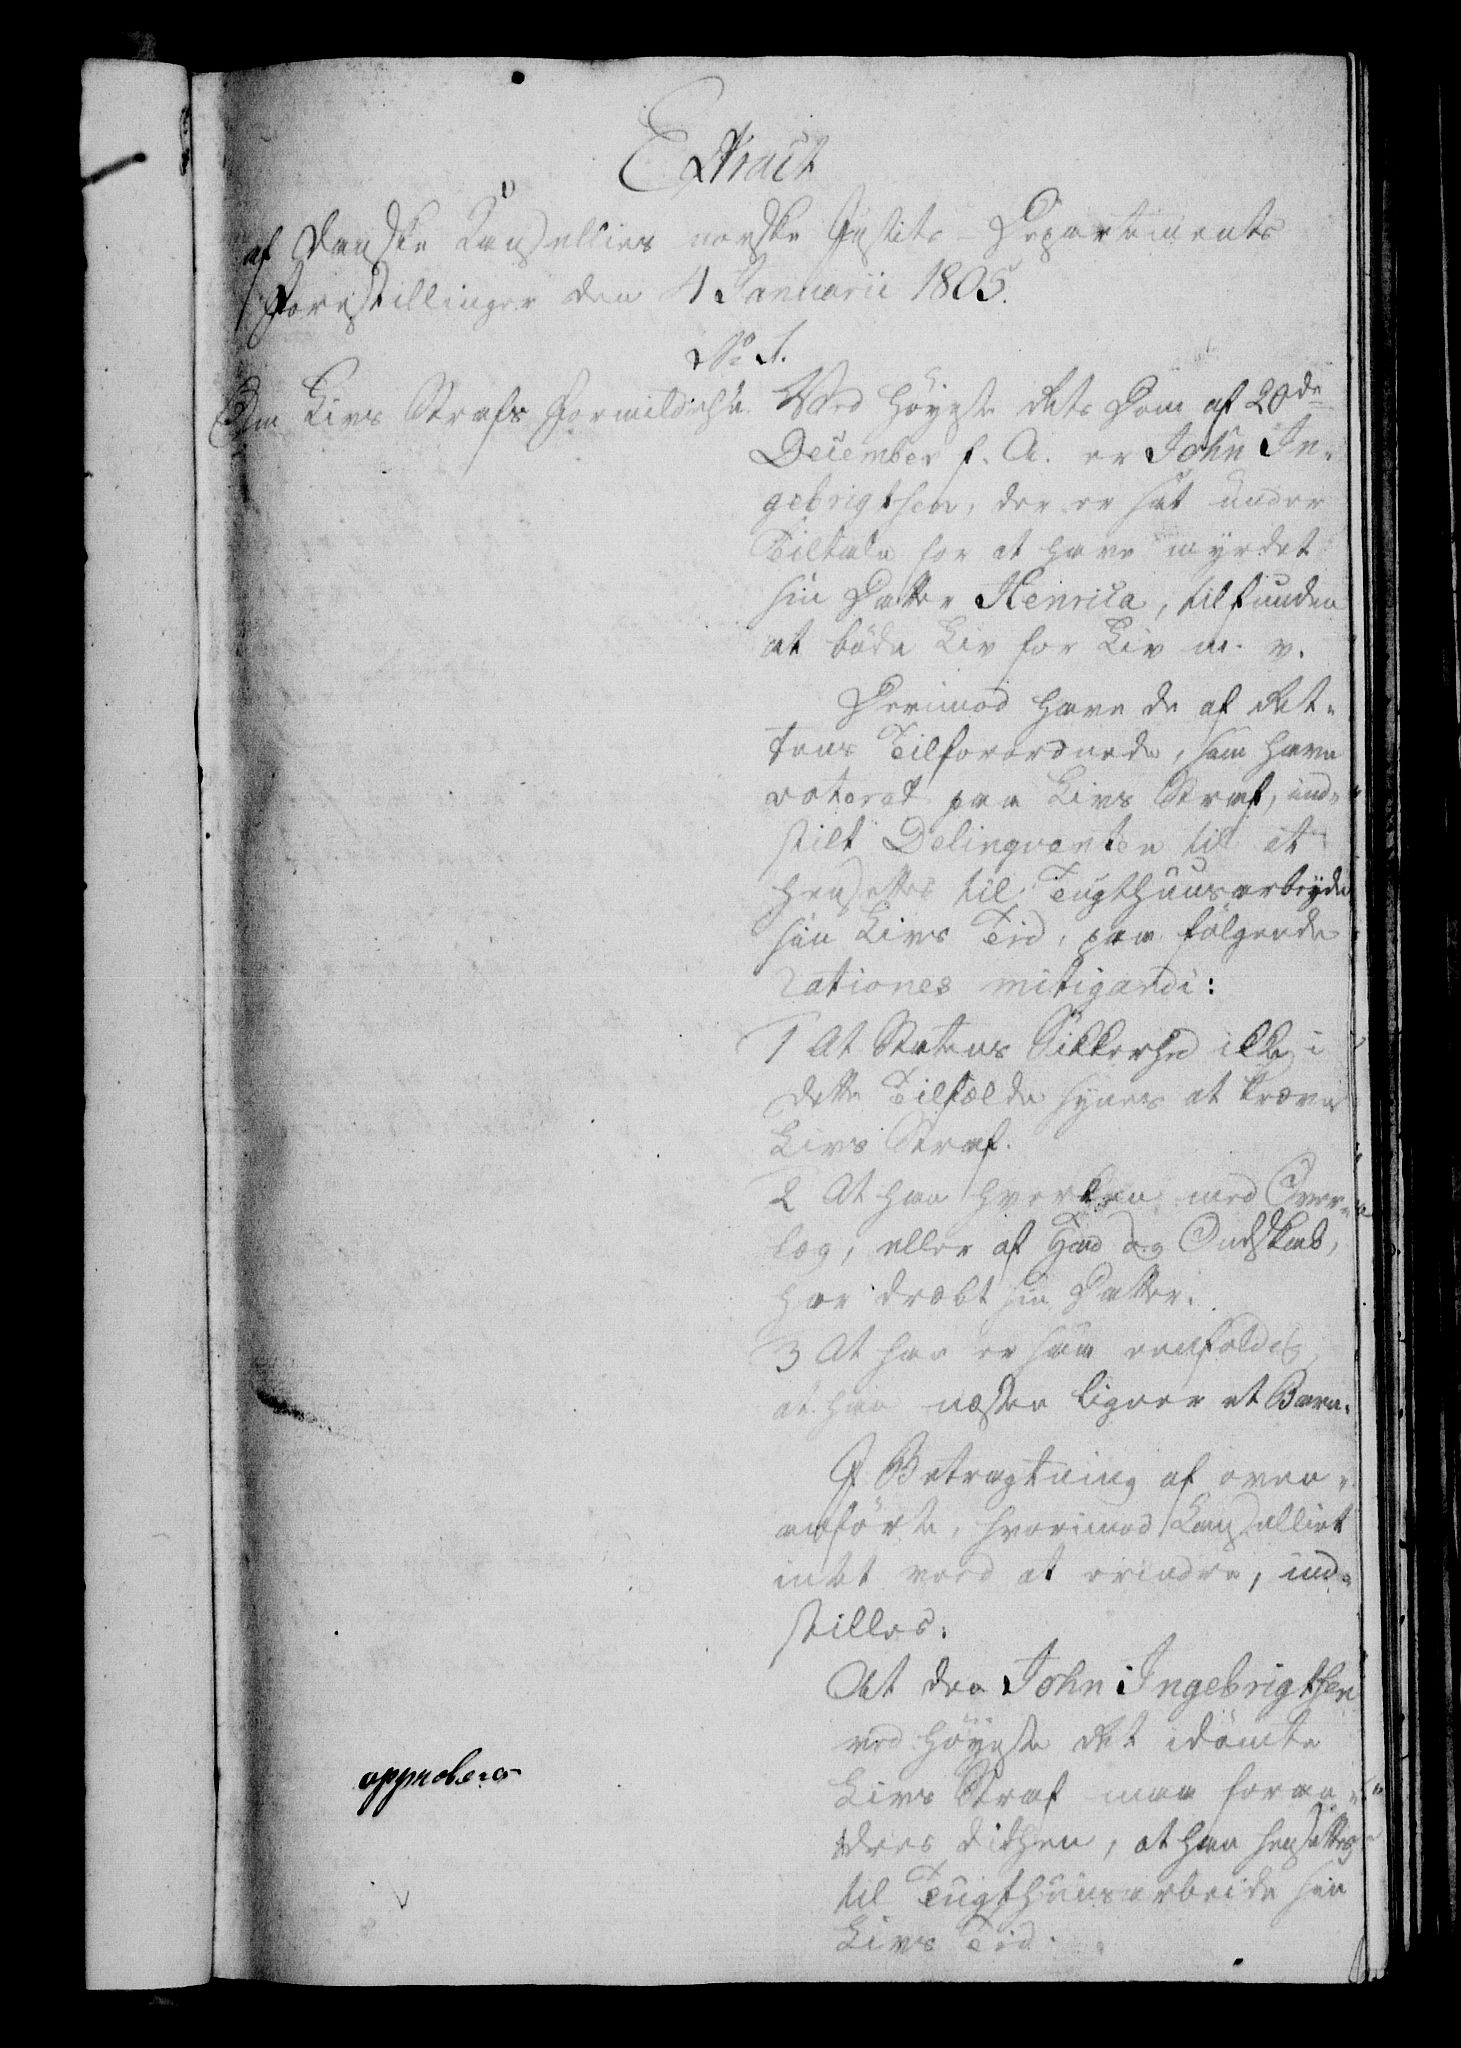 Extract
af Danske Cancelliets norske Justits-Departements
Forestillinger den 4 Januarii 1805.
No 1.
Om Livs Strafs Formildelse
Ved Høyeste Rets Dom af 20de
December f. A. er John In-
gebrigtsen, der er sat under
Tiltale for at have myrdet
sin Datter Henrica, tilfunden
at bøde Liv for Liv m. v.
Derimod have de af Ret-
tens Tilforordnede, som have
voteret paa Livs Straf, ind-
stilt Delinqventen til at
hensettes til Tugthuusarbeyde
sin Livs Tid, paa følgende
rationes mitigandi:
1 At Statens Sikkerhed ikke i
dette Tilfælde synes at kræve
Livs Straf.
2 At han hverken med Over-
læg, eller af Had og Ondskab,
har dræbt sin Datter.
3 At han er saa eenfoldig,
at han næsten ligner et Barn.
I Betragtning af oven-
anførte, hvorimod Cancelliet
intet veed at erindre, ind-
stilles:
At den John Ingebrigtsen
ved Høyeste Ret idømte
Livs Straf maa foran-
dres derhen, at han hensættes
til Tugthuusarbeide sin
Livs Tid.
approberes